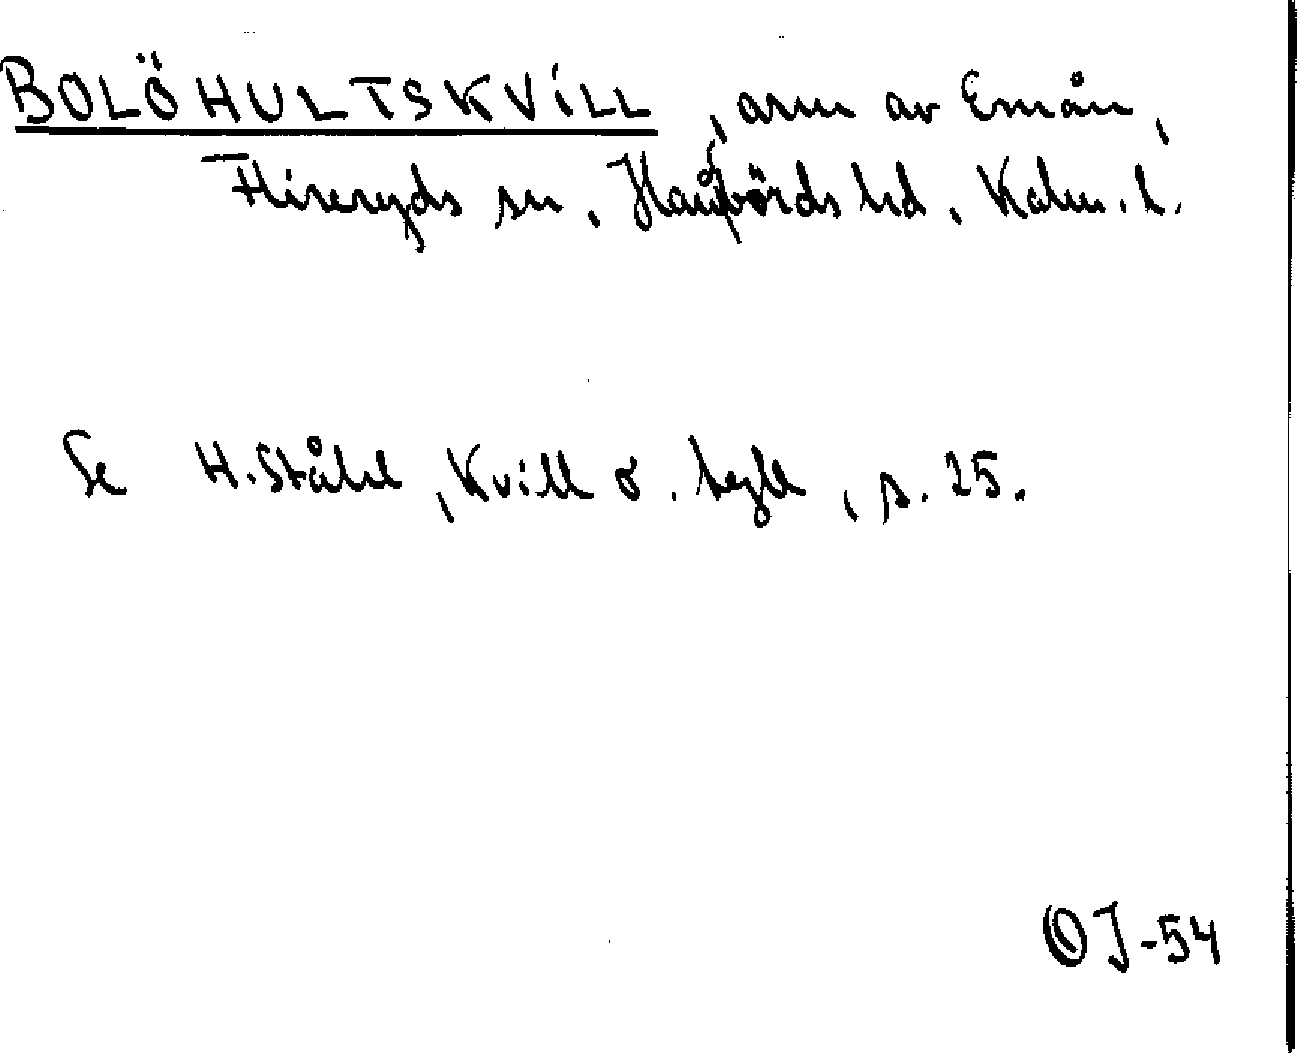 BOLÖHULTSKVILL, arm av Emån,
Fliseryds sn, Handbörds hd, Kalm. l.
Se H. Ståhl, Kvill o. tyll, s. 25.
OJ-54